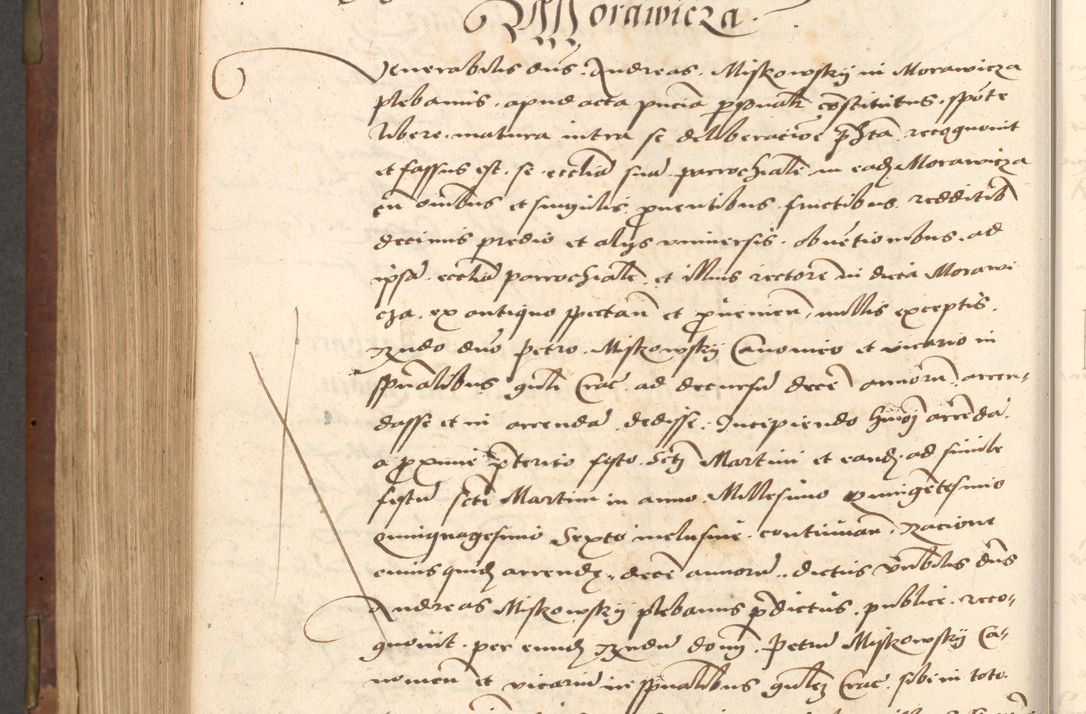 Morawicza.
Venerabilis dns. Andreas. Miskowskij in Morawicza
plebanus. apud acta pncia psonalr constitutus. sponte
libere. matura intra se deliberacioe phita. recognouit
et fassus est. se eccliam suam parrochiale. in eadem Morawicza
cu omibus et singulis. prouentibus. fructibus. redditib
decimis predio et alijs vniuersis. obuentionibus. ad
ipsam eccliam parrochiale. et illius rectore in dicta Morawi
cza. ex antiquo spectan et prouenien, nullis exceptis.
Rndo dno Petro. Miskowskij Canonico et vicario in
spualibus gnli Crac. ad decursum dece annoru. arren-
dasse et in arrenda dedisse. Incipiendo huiusmodi arrenda.
a proxime preterito festo. Scti Martini et eandem ad simile
festum scti Martini in anno. Millesimo quingetesimo
quinquagesimo Sexto inclusiue. continuan. Racione
cuius quidem arrende. dece annoru. dictus vnbilis dns
Andreas Miskowskij plebanus pdictus. publice. reco-
gnouit. per eundem Rndum domi. Petrum Miskowskij Ca-
nonicu et vicarium in spualibus gnlem Crac. sibi in toto.